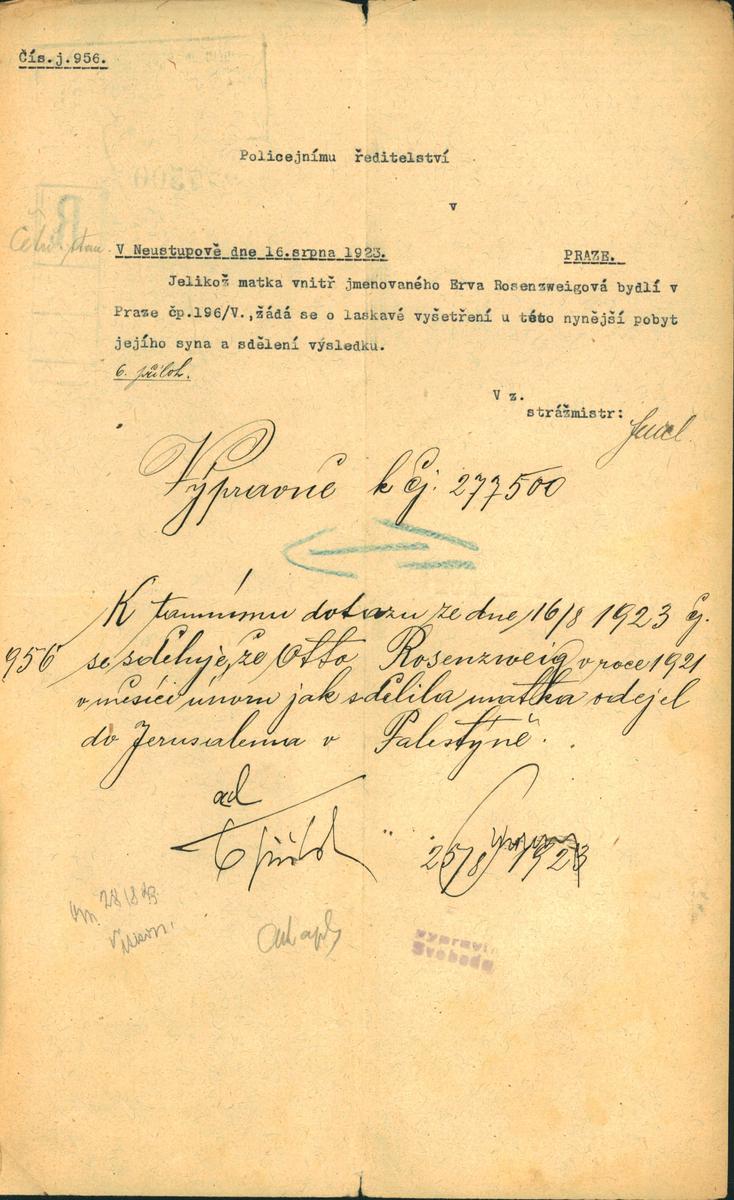 Čís.j.956.
Policejnímu ředitelství
v
V Neustupově dne 16.srpna 1923. PRAZE.
Jelikož matka vnitř jmenovaného Erva Rosenzweigová bydlí v
Praze čp.196/V.,žádá se o laskavé vyšetření u této nynější pobyt
jejího syna a sdělení výsledku.
6. příloh.
V z.
strážmistr:
Výpravně k čj: 277500
K tamnímu dotazu ze dne 16/8 1923 čj.
956 se sděluje, že Otto Rosenzweig v roce 1921
v měsíci únoru jak sdělila matka odejel
do Jerusalema v Palestýně.
ad
6 příloh
25/8 1923
28/8 23
vypravil
Svoboda